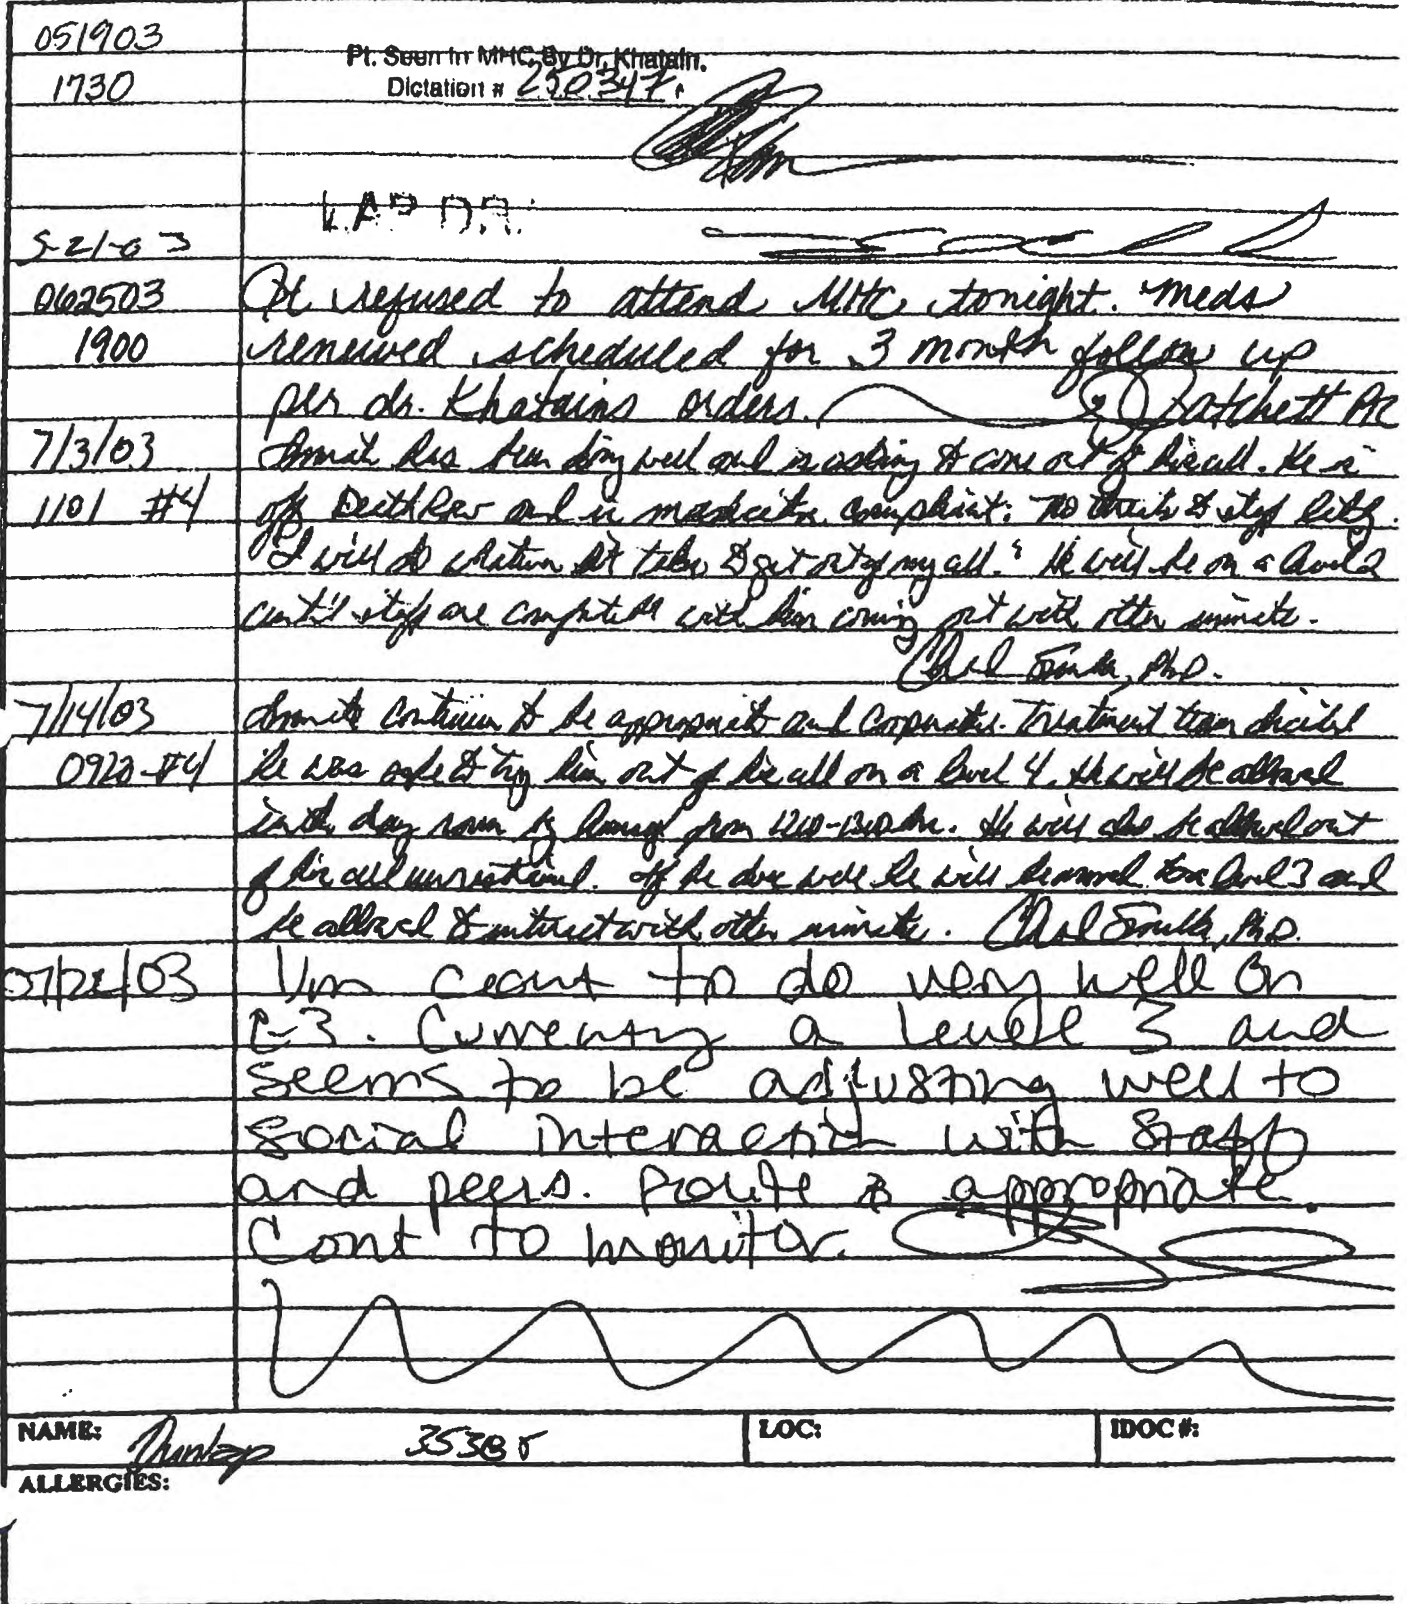 051903
Pt. Seen In MHC By Dr. Khatain.
1730
Dictation # 250347
LAB D.R.
5-21-03
062503 Pt refused to attend MHC tonight. Meds
1900 renewed scheduled for 3 month follow up
per dr. Khatains orders.
7/3/03 Inmate has been doing well and is asking to come out of his cell. He is
1101 #4 off Death Row and is medication compliant. No threats to staff lately.
"I will do whatever it takes to get out of my cell." He will be on a level 2
until staff are comfortable with him coming out with other inmates.
, PhD.
7/14/03 Inmate continues to be appropriate and cooperative. Treatment team decided
#4 he was safe to try him out of his cell on a level 4. He will be allowed
in the day room by himself from hrs. He will also be allowed out
of his cell unrestrained. If he does well he will be moved to a level 3 and
be allowed to interact with other inmates. , PhD.
/03 I/m cont to do very well on
C-3. Currently a level 3 and
seems to be adjusting well to
social interaction with staff
and peers. Polite & appropriate.
Cont to monitor.
NAME: Dunlap LOC: IDOC #:
ALLERGIES: